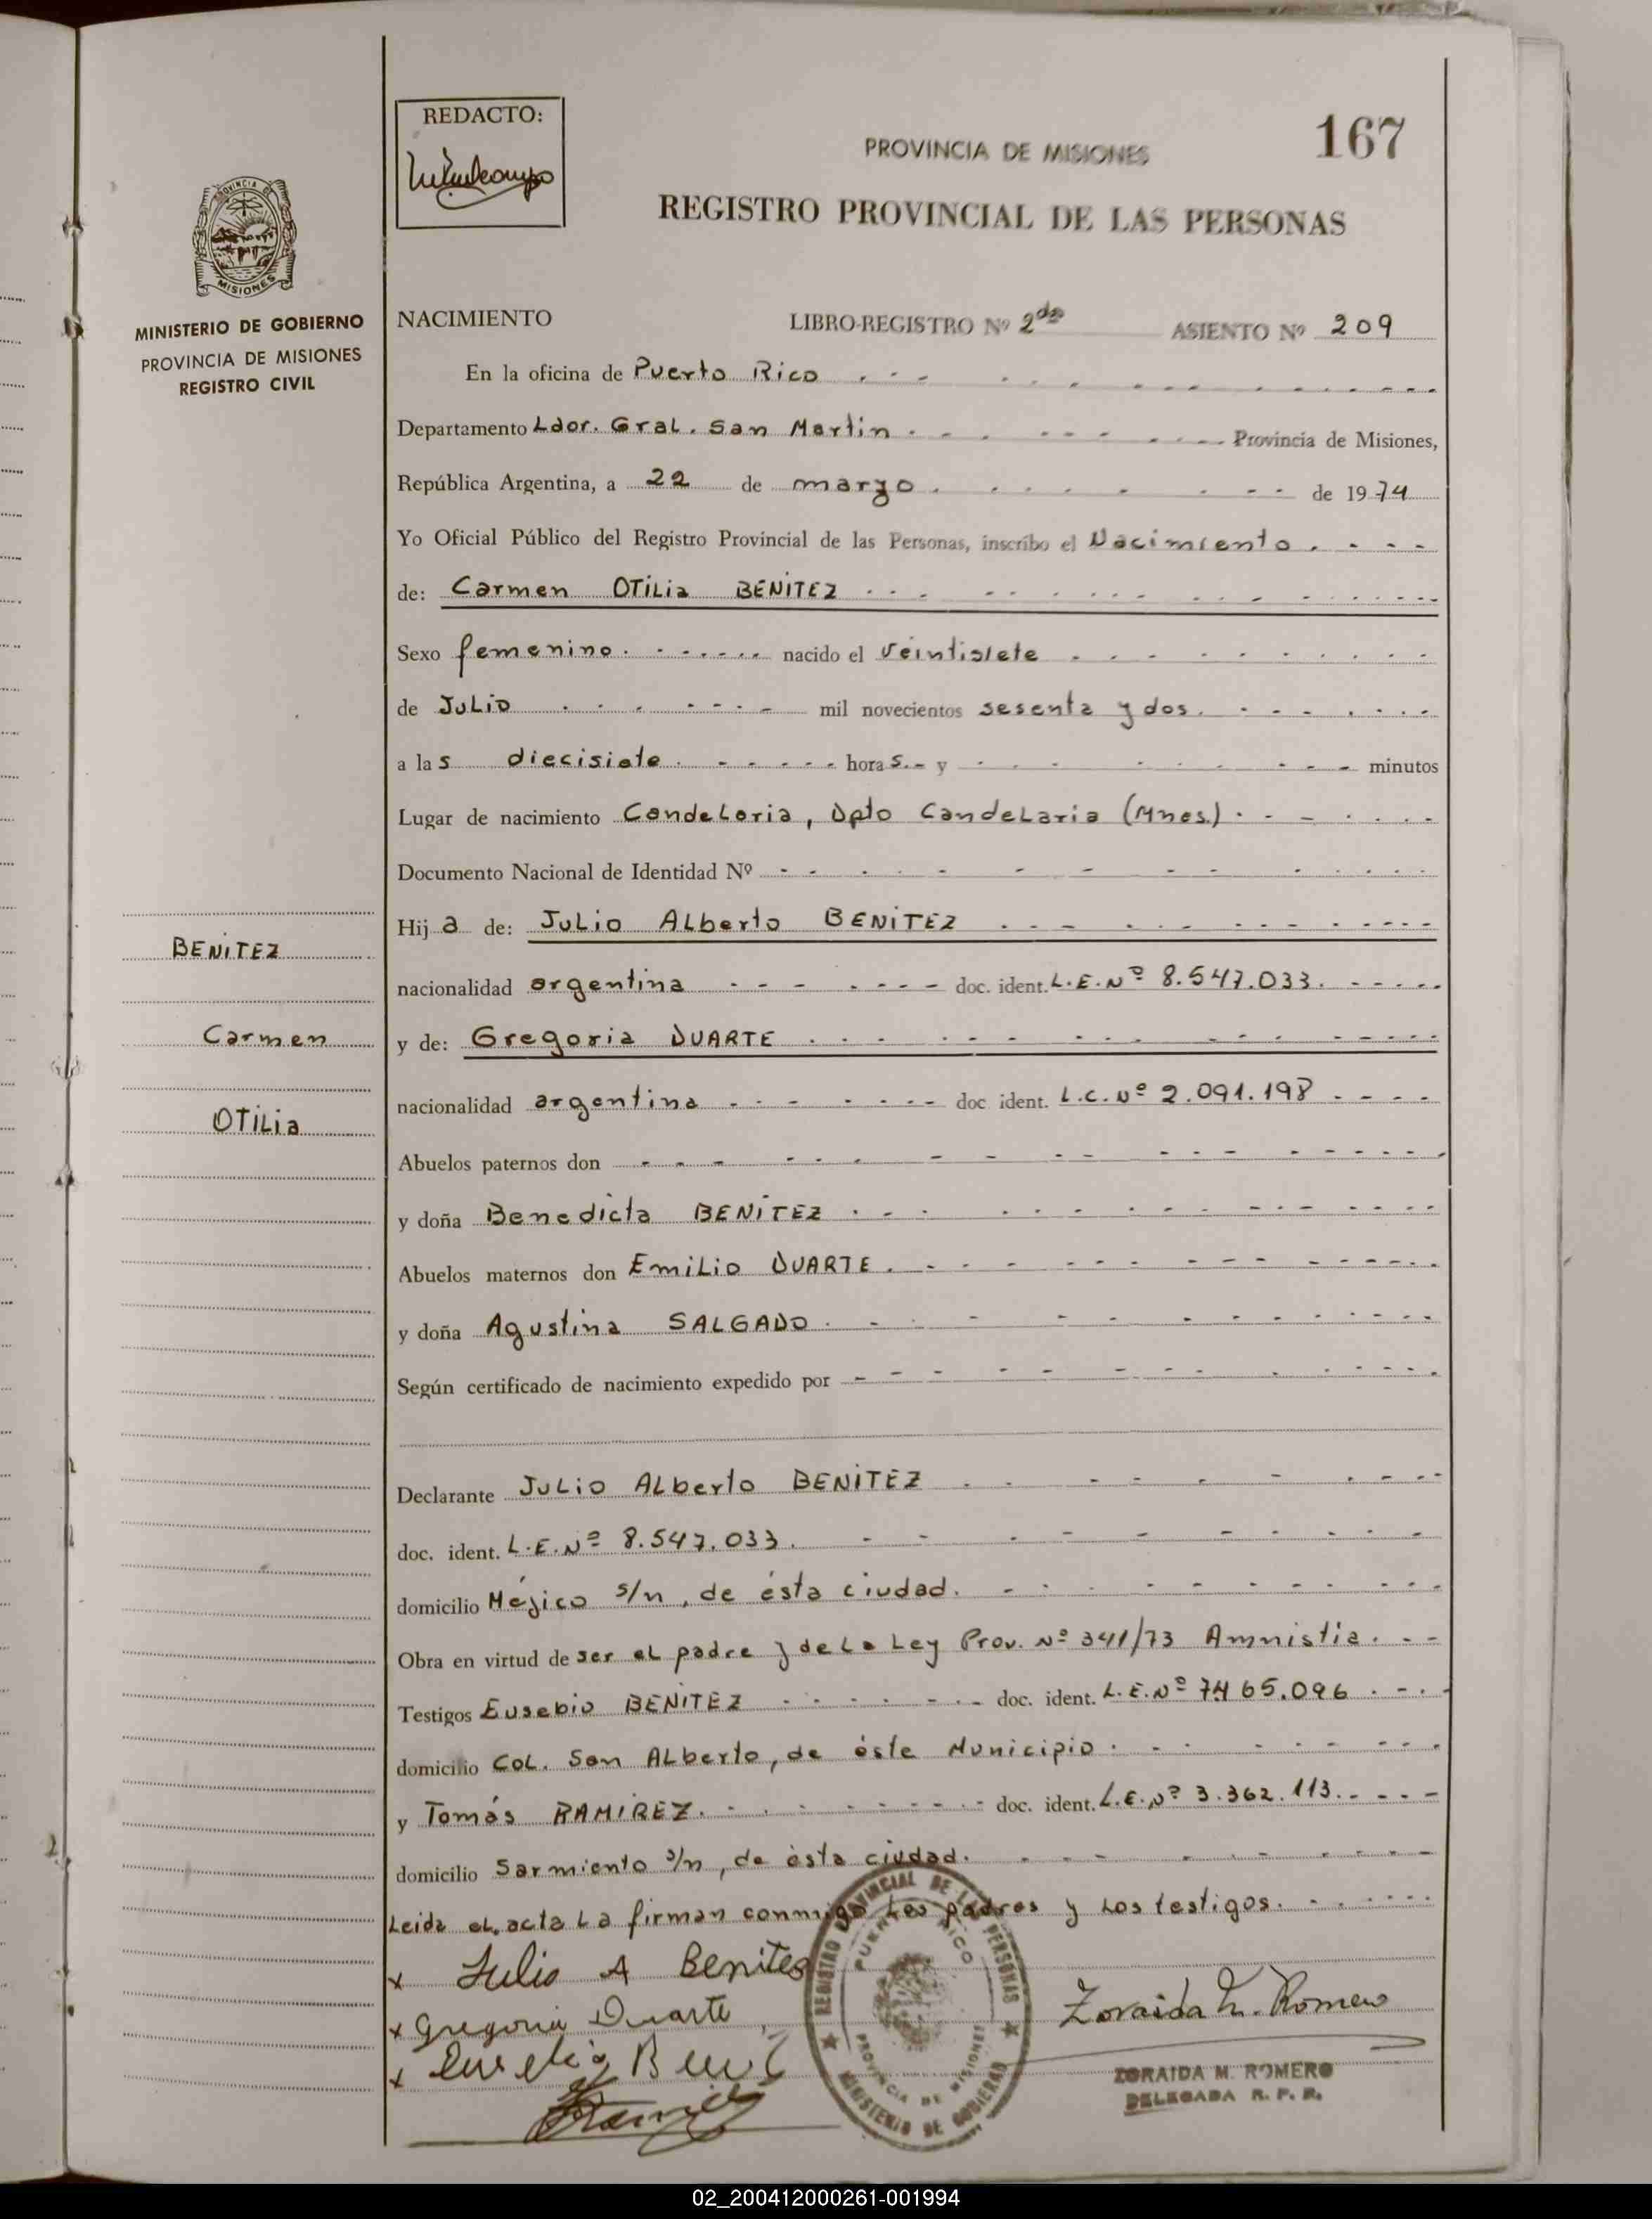 REDACTO:
167
PROVINCIA DE MISIONES
REGISTRO PROVINCIAL DE LAS PERSONAS
PROVINCIA DE
MISIONES
MINISTERIO DE GOBIERNO
PROVINCIA DE MISIONES
REGISTRO CIVIL
NACIMIENTO LIBRO-REGISTRO Nº 2do ASIENTO Nº 209
En la oficina de Puerto Rico
Departamento Ldor. Gral. San Martin Provincia de Misiones,
República Argentina, a 22 de marzo de 1974
Yo Oficial Público del Registro Provincial de las Personas, inscribo el Nacimiento
de: Carmen OTiLia BENiTEZ
Sexo femenino nacido el Veintisiete
de JuLio mil novecientos sesenta y dos
a las diecisiete horas y minutos
Lugar de nacimiento CandeLaria, Dpto CandeLaria (Mnes.)
Documento Nacional de Identidad Nº
Hija de: JuLio ALberto BENiTEZ
nacionalidad argentina doc. ident. L.E.Nº 8.547.033.
y de: Gregoria DUARTE
nacionalidad argentina doc ident. L.C.Nº 2.091.198
Abuelos paternos don
y doña Benedicta BENiTEZ
Abuelos maternos don EmiLio DUARTE.
y doña Agustina SALGADO
Según certificado de nacimiento expedido por
Declarante JuLio ALberto BENiTEZ
doc. ident. L.E.Nº 8.547.033.
domicilio Méjico s/n, de ésta ciudad.
Obra en virtud de ser eL padre y de La Ley Prov. Nº 341/73 Amnistia.
Testigos Eusebio BENITEZ doc. ident. L.E.Nº 7465.096
domicilio COL. San ALberto, de éste Municipio
y Tomás RAMIREZ. doc. ident. L.E.Nº 3.362.113.
domicilio Sarmiento s/n, de ésta ciudad.
Leida eL acta La firman conmigo Los padres y Los testigos.
BENiTEZ
Carmen
OTiLia
x Julio A Benites
x Gregoria Duarte
x
REGISTRO PROVINCIAL DE LAS PERSONAS
PUERTO RICO
PROVINCIA DE MISIONES
MINISTERIO DE GOBIERNO
Zoraida M. Romero
ZORAIDA M. ROMERO
DELEGADA R. P. P.
02_200412000261-001994